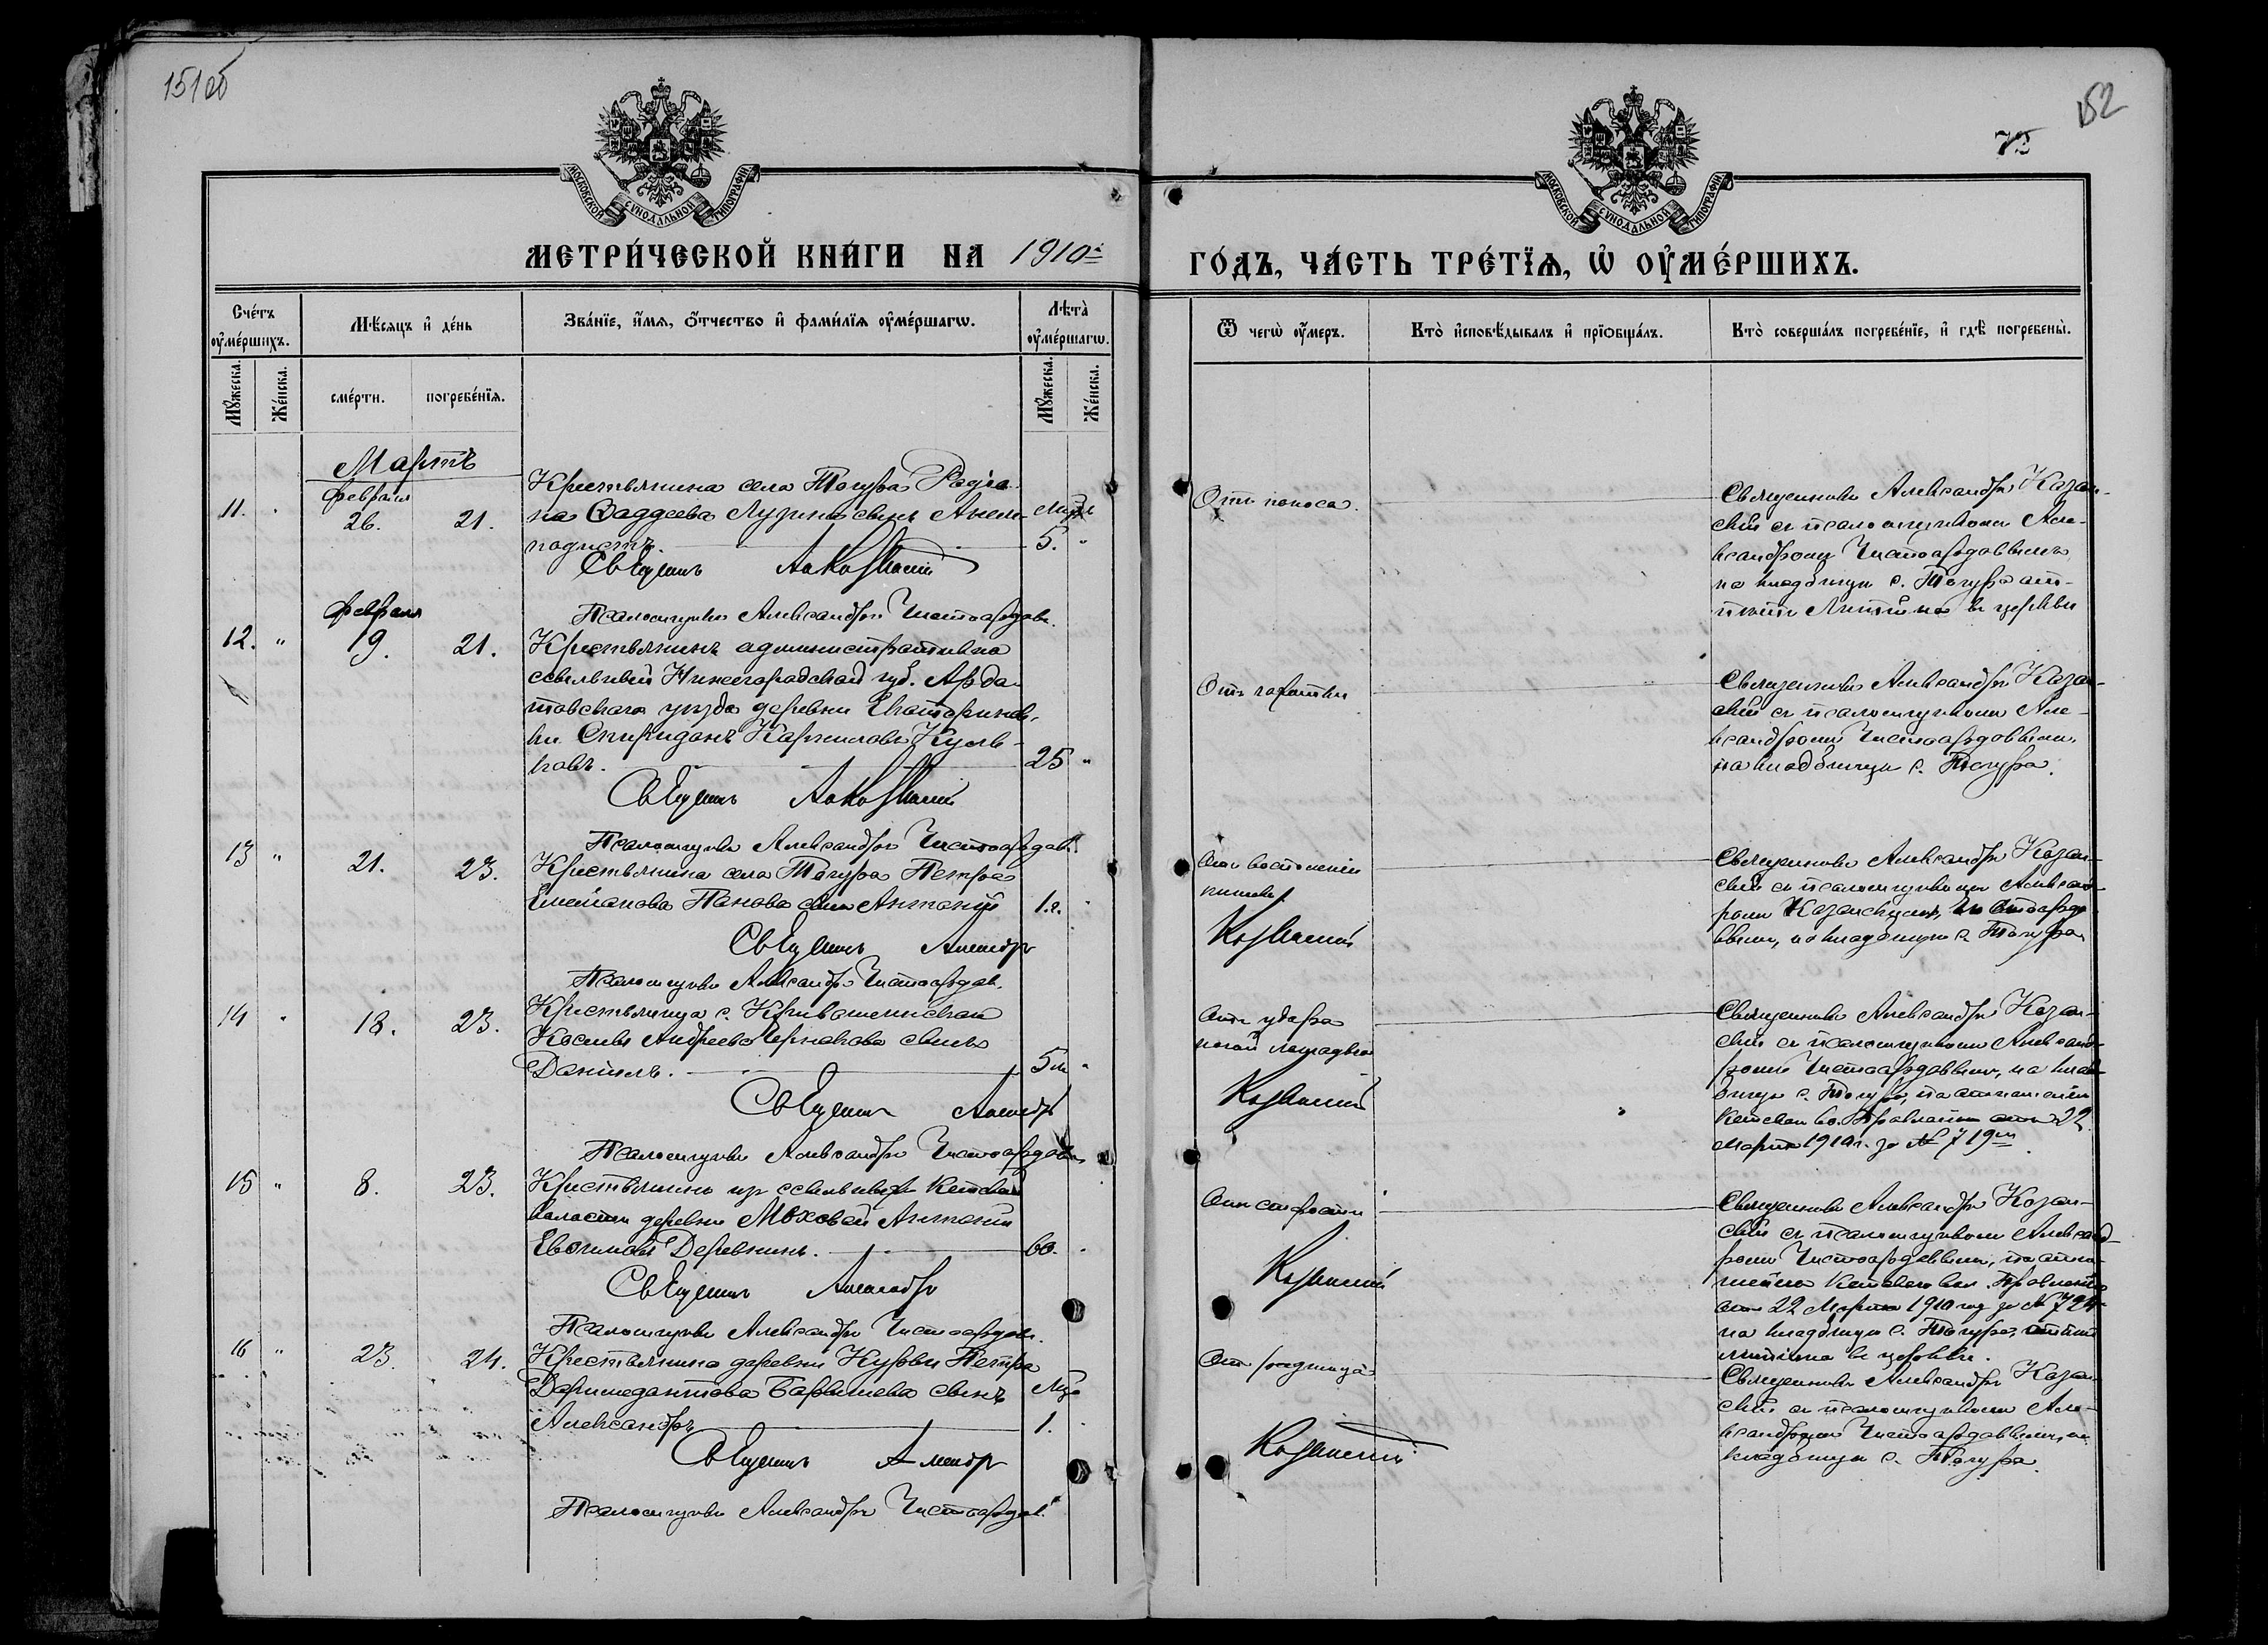 151об
152
73
МОСКОВСКОЙ СѴНОДАЛЬНОЙ ТИПОГРАФІИ
МОСКОВСКОЙ СѴНОДАЛЬНОЙ ТИПОГРАФІИ
МЕТРИ́ЧЕСКОЙ КНИ́ГИ НА 1910й
ГО́ДЪ, ЧА́СТЬ ТРЕ́ТЇѦ, Ѿ ОУ҆МЕ́РШИХЪ.
Сче́тъ оу҆ме́ршихъ.
Мѣ́сѧцъ и҆ де́нь
Зва́нїе, и҆́мѧ, ѻ҆́тчество и҆ фами́лїѧ оу҆ме́ршагѡ.
Лѣта̀ оу҆ме́ршагѡ.
Мꙋ́жеска.
Же́нска.
сме́рти.
погребе́нїѧ.
Мꙋ́жеска.
Же́нска.
Ѿ чегѡ̀ оу҆́меръ.
Кто̀ и҆сповѣ́дывалъ и҆ прїѻбща́лъ.
Кто̀ соверша́лъ погребе́нїе, и҆ гдѣ̀ погребены̀.
Мартъ
11.
Февраля
26.
21.
Крестьянина села Тогура Родіо-
на Ѳаддеева Лугина сынъ Анем-
подистъ.
5.
Священникъ Ал. Казанскій
Псаломщикъ Александръ Чистосердовъ.
Отъ поноса.
Священникъ Александръ Казан-
скій съ псаломщикомъ Але-
ксандромъ Чистосердовымъ
на кладбищѣ с. Тогура от-
пѣтъ въ церкви
12. "
Февраля
19.
21.
Крестьянинъ административно
ссыльный Нижегородской губ. Арда-
товскаго уѣзда деревни Екатеринов-
ки Спиридонъ Карниловъ Куль-
ковъ.
25 "
Священникъ Ал. Казанскій
Псаломщикъ Александръ Чистосердовъ.
Отъ чахотки
Священникъ Александръ Казан-
скій съ псаломщикомъ Але-
ксандромъ Чистосердовымъ,
на кладбищѣ с. Тогура.
13 "
21.
23.
Крестьянина села Тогура Петра
Панова сынъ Антоній
1.г.
Священникъ Александръ
Казанскій
Псаломщикъ Александръ Чистосердов.
Священникъ Александръ Казан-
скій съ псаломщикомъ Александ-
ромъ Казанскимъ, Чистосердо-
вымъ, на кладбищѣ с. Тогура
14 "
18.
23.
Крестьянина с. Кривошеинскаго
Андреева Ермакова сынъ
Даніилъ.
5
Священникъ Александръ
Казанскій
Псаломщикъ Александръ Чистосердовъ
Отъ удара
ногой лошадью
Священникъ Александръ Казан-
скій съ псаломщикомъ Александ-
ромъ Чистосердовымъ, на клад-
бищѣ с. Тогура, по отношенію
Кетскаго во. Правленія отъ 22
Марта 1910 г. за № 719м
15 "
8.
23.
Крестьянинъ изъ ссыльныхъ Кетской
волости деревни Моховой Антоній
Евѳимовъ Деревнинъ.
60.
Священникъ Александръ
Казанскій
Псаломщикъ Александръ Чистосердов.
Отъ старости
Священникъ Александръ Казан-
скій съ псаломщикомъ Александ-
ромъ Чистосердовымъ, по отно-
шенію Кетскаго вол. Правленія
отъ 22 Марта 1910 год за № 724
на кладбищѣ с. Тогура,
въ церкви.
16 "
23.
24.
Крестьянина деревни Петра
Барышева сынъ
Александръ
1.
Священникъ
Казанскій
Псаломщикъ Александръ Чистосердов.
Отъ родимца
Священникъ Александръ Казан-
скій съ псаломщикомъ Але-
ксандромъ Чистосердовымъ, на
кладбищѣ с. Тогура.